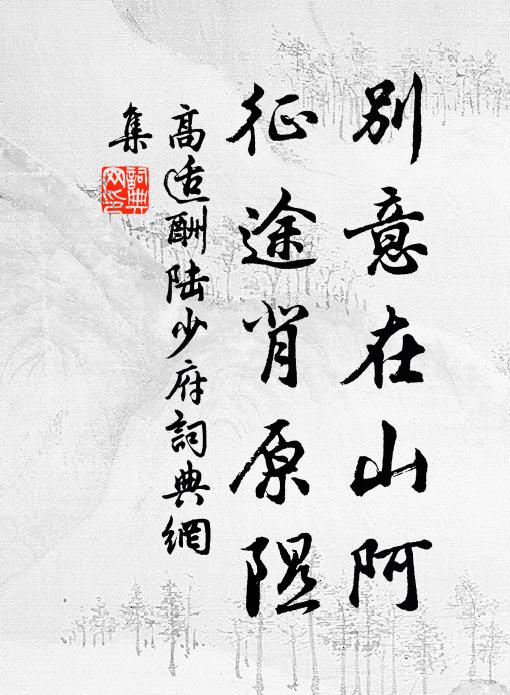 別意在山阿
征途背原隰
高适酬陆少府詞典網
集
詞典網印